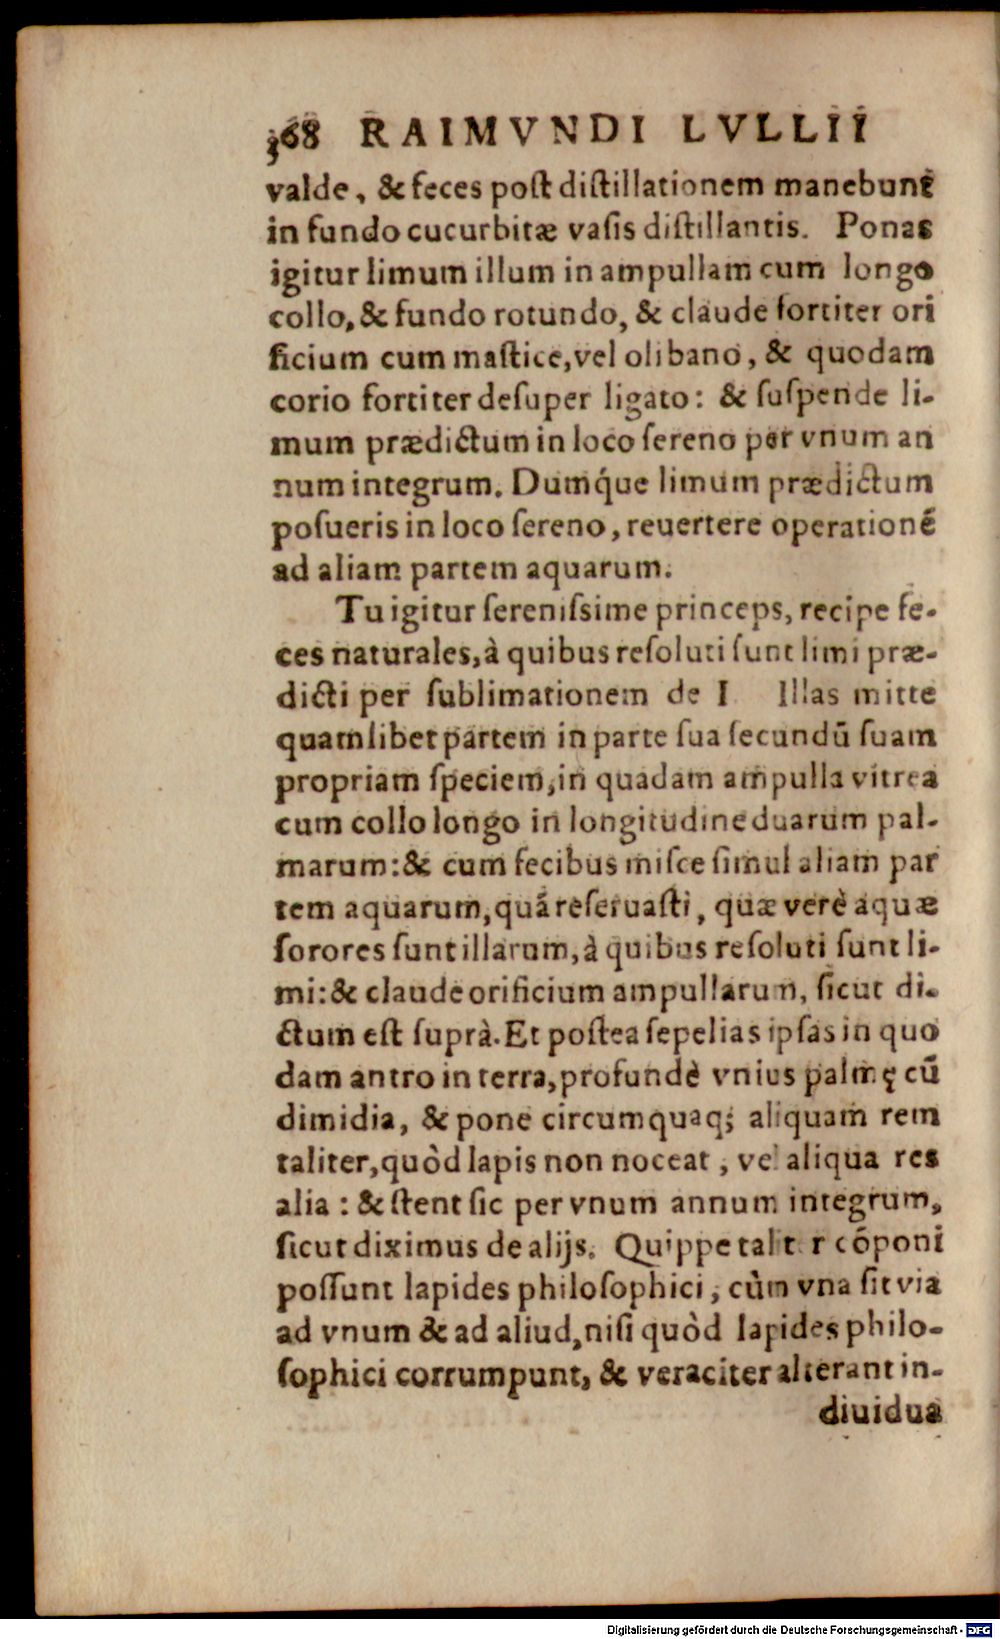 368 RAIMVNDI LVLLII
valde, & feces poſt diſtillationem manebunt
in fundo cucurbitæ vaſis diſtillantis. Ponas
igitur limum illum in ampullam cum longo
collo, & fundo rotundo, & claude fortiter ori
ficium cum maſtice, vel olibano, & quodam
corio fortiter deſuper ligato: & ſuſpende li-
mum prædictum in loco ſereno per vnum an
num integrum. Dumq́ue limum prædictum
poſueris in loco ſereno, reuertere operationē
ad aliam partem aquarum.
Tu igitur ſereniſsime princeps, recipe fe-
ces naturales, à quibus reſoluti ſunt limi præ-
dicti per ſublimationem de I Illas mitte
quamlibet partem in parte ſua ſecundū ſuam
propriam ſpeciem, in quadam ampulla vitrea
cum collo longo in longitudine duarum pal-
marum: & cum fecibus miſce ſimul aliam par
tem aquarum, quā reſeruaſti, quæ verè aquæ
ſorores ſunt illarum, à quibus reſoluti ſunt li-
mi: & claude orificium ampullarum, ſicut di-
ctum eſt ſuprà. Et poſtea ſepelias ipſas in quo
dam antro in terra, profundè vnius palmę cū
dimidia, & pone circumquaq; aliquam rem
taliter, quòd lapis non noceat, vel aliqua res
alia: & ſtent ſic per vnum annum integrum,
ſicut diximus de alijs. Quippe taliter cōponi
poſſunt lapides philoſophici, cùm vna ſit via
ad vnum & ad aliud, niſi quòd lapides philo-
ſophici corrumpunt, & veraciter alterant in-
diuidua
Digitalisierung gefördert durch die Deutsche Forschungsgemeinschaft - DFG